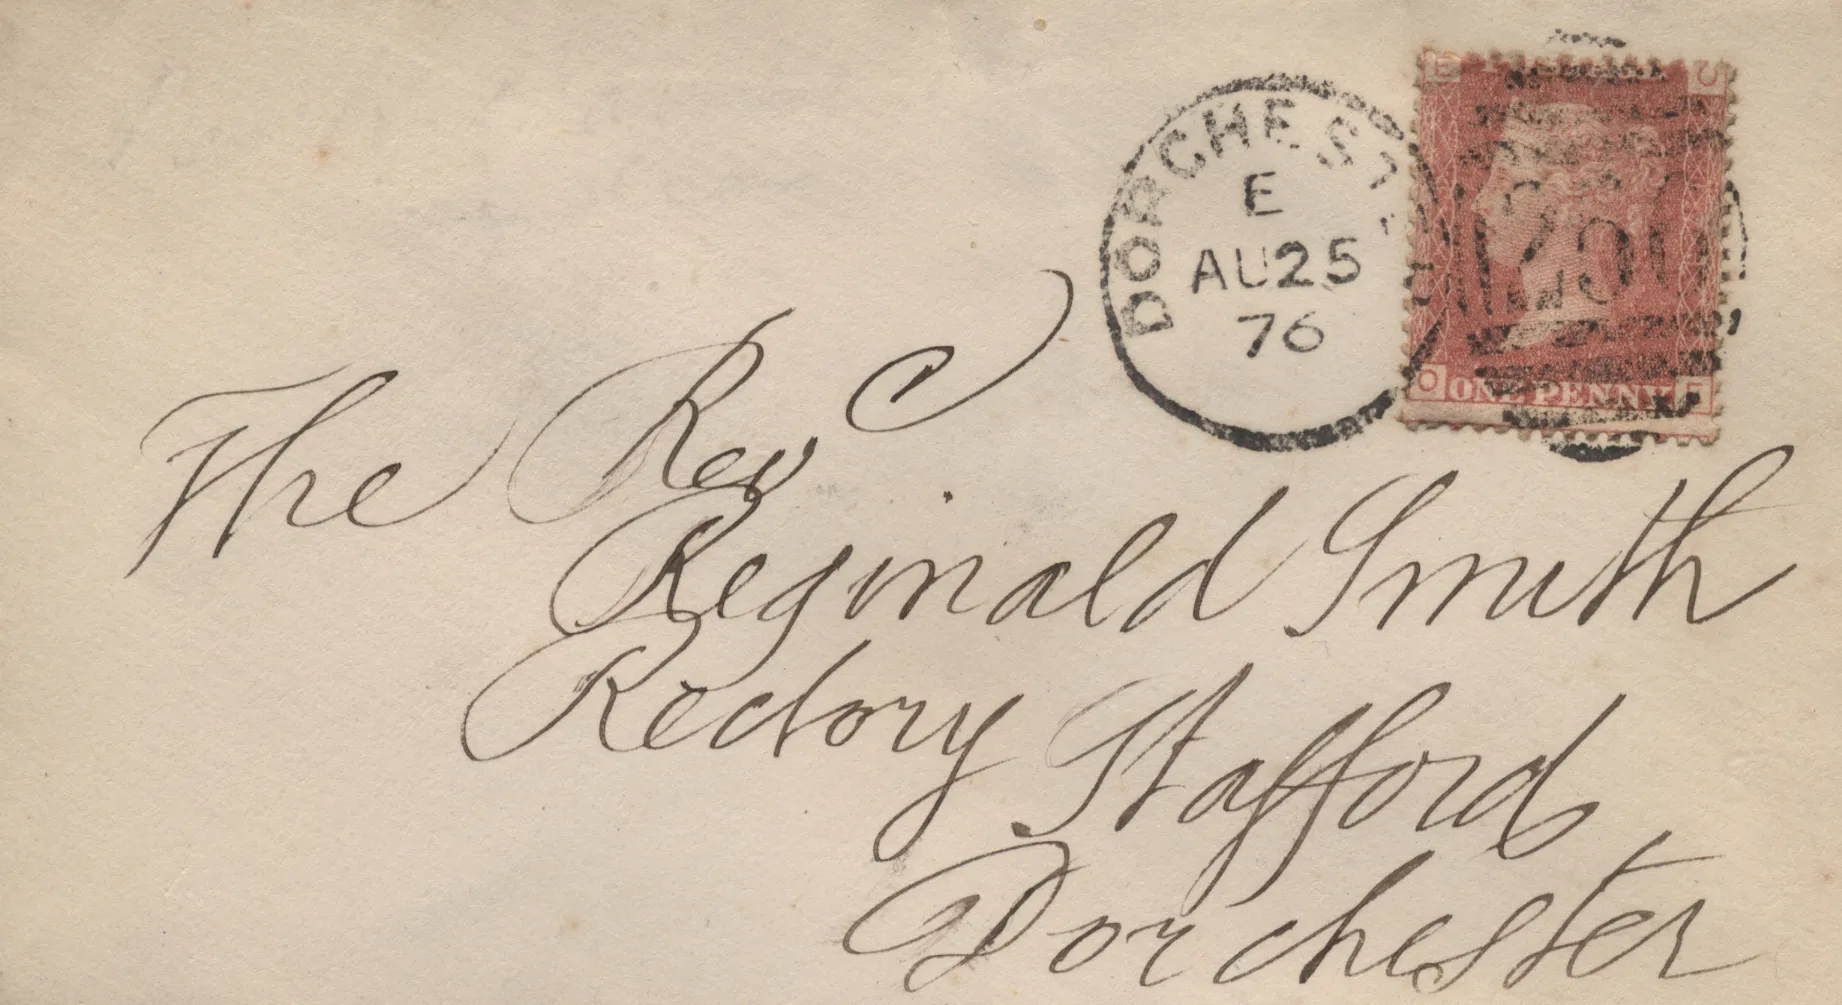 DORCHEST
E
AU25
76
250
ONE PENNY
The Revd
Reginald Smith
Rectory Stafford
Dorchester